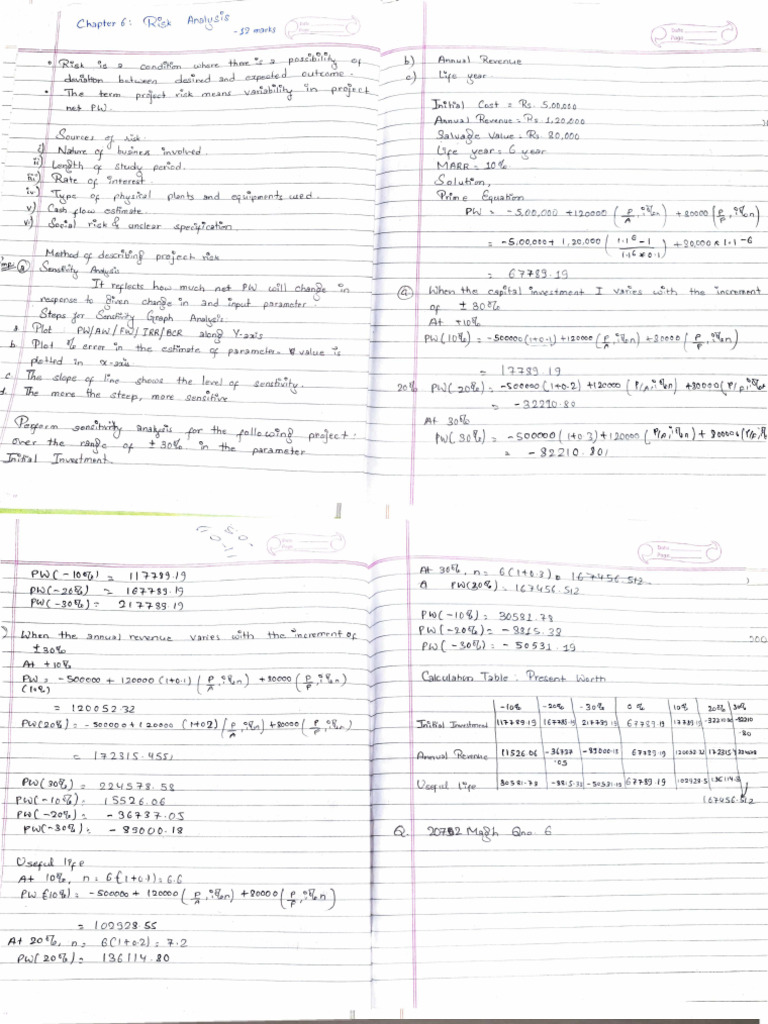 Chapter 6: Risk Analysis
-12 marks
• Risk is a condition where there is a possibility of
deviation between desired and expected outcome.
• The term project risk means variability in project
net PW.
Sources of risk.
i) Nature of business involved.
ii) Length of study period.
iii) Rate of interest.
iv) Type of physical plants and equipments used.
v) Cash flow estimate.
v) Social risk & unclear specification.
Method of describing project risk
Sensitivity Analysis
It reflects how much net PW will change in
response to given change in and input parameter.
Steps for Sensitivity Graph Analysis:
a. Plot PW/AW/FW/IRR/BCR along Y-axis
b. Plot % error in the estimate of parameter. value is
plotted in x-axis
c. The slope of line shows the level of sensitivity.
d. The more the steep, more sensitive
Perform sensitivity analysis for the following project:
over the range of ±30% in the parameter
Initial Investment
Date
Page
b) Annual Revenue
c) Life year.
Initial Cost = Rs. 5,00,000
Annual Revenue = Rs. 1,20,000
Salvage Value = Rs. 80,000
Life year = 6 year
MARR = 10%
Solution,
Prime Equation
PW = -5,00,000 + 120000 (P/A, i%, n) + 80000 (P/F, i%, n)
= -5,00,000 + 1,20,000 (1.1^6 - 1 / 1.1^6 * 0.1) + 80,000 x 1.1^-6
= 67789.19
(a) When the capital investment I varies with the increment
of ±30%
At +10%
PW(10%) = -500000(1+0.1) + 120000 (P/A, i%, n) + 80000 (P/F, i%, n)
= 17789.19
20% PW(20%) = -500000(1+0.2) + 120000 (P/A, i%, n) + 80000 (P/F, i%,
= -32210.80
At 30%
PW(30%) = -500000(1+0.3) + 120000 (P/A, i%, n) + 80000 (P/F, i%,
= -82210.801
Date
Page
PW(-10%) = 117789.19
PW(-20%) = 167789.19
PW(-30%) = 217789.19
When the annual revenue varies with the increment of
±30%
At +10%
PW = -500000 + 120000 (1+0.1) (P/A, i%, n) + 80000 (P/F, i%, n)
(10%)
= 120052.32
PW(20%) = -500000 + 120000 (1+02) (P/A, i%, n) + 80000 (P/F, i%, n)
= 172315.4551
PW(30%) = 224578.58
PW(-10%) = 15526.06
PW(-20%) = -36737.05
PW(-30%) = -89000.18
Useful life
At 10%, n = 6(1+0.1) = 6.6
PW (10%) = -500000 + 120000 (P/A, i%, n) + 80000 (P/F, i%, n)
= 102928.55
At 20%, n = 6(1+0.2) = 7.2
PW(20%) = 136114.80
Date
Page
At 30%, n = 6(1+0.3) = 167456.512
PW(30%) = 167456.512
PW(-10%) = 30581.78
PW(-20%) = -8815.38
PW(-30%) = -50531.19
Calculation Table: Present Worth
-10% -20% -30% 0% 10% 20% 30%
Initial Investment 117789.19 167789.19 217789.19 67789.19 17789.19 -32210.80 -82210.80
Annual Revenue 11526.06 -36737.05 -89000.18 67789.19 120052.32 172315
Useful life 30581.78 -8815.38 -50531.19 67789.19 102928.5 136114.8
167456.512
Q. Magh Qno. 6